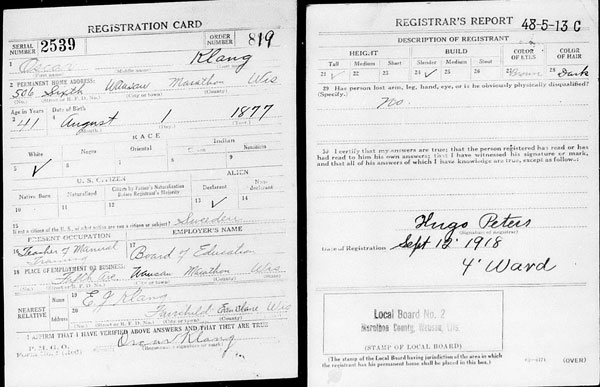 REGISTRATION CARD
SERIAL NUMBER 2539 ORDER NUMBER 819
1 Oscar Klang
(First name) (Middle name)
2 PERMANENT HOME ADDRESS:
506 Sixth Wausau Marathon Wis
(No.) (Street or R. F. D. No.) (City or town) (County) (State)
Age in Years Date of Birth
3 41 4 August 1 1877
(Month.) (Day.) (Year.)
RACE
White Negro Oriental Indian
5 ✓ 6 7 8 9
U. S. CITIZEN ALIEN
Native Born Naturalized Citizen by Father's Naturalization Before Registrant's Majority Declarant Non-declarant
10 11 12 13 ✓ 14
15 If not a citizen of the U. S., of what nation are you a citizen or subject? Sweden
PRESENT OCCUPATION EMPLOYER'S NAME
16 Teacher of Manual Training 17 Board of Education
18 PLACE OF EMPLOYMENT OR BUSINESS:
Wausau Marathon Wis
(No.) (Street or R. F. D. No.) (City or town) (County) (State)
NEAREST RELATIVE
Name 19 E J Klang
Address 20 Fairchild Eau Claire Wis
(No.) (Street or R. F. D. No.) (City or town) (County) (State)
I AFFIRM THAT I HAVE VERIFIED ABOVE ANSWERS AND THAT THEY ARE TRUE
P. M. G. O.
Oscar Klang
REGISTRAR'S REPORT 48-5-13 C
DESCRIPTION OF REGISTRANT
HEIGHT BUILD COLOR OF EYES COLOR OF HAIR
Tall Medium Short Slender Medium Stout
21 ✓ 22 23 24 ✓ 25 26 27 28 Dark
29 Has person lost arm, leg, hand, eye, or is he obviously physically disqualified?
(Specify.) No.
30 I certify that my answers are true; that the person registered has read or has
had read to him his own answers; that I have witnessed his signature or mark,
and that all of his answers of which I have knowledge are true, except as follows:
Hugo Peters
(Signature of registrar)
Date of Registration Sept 12 1918
4" Ward
Local Board No. 2
Marathon County, Wausau, Wis
(STAMP OF LOCAL BOARD)
(The stamp of the Local Board having jurisdiction of the area in which
the registrant has his permanent home shall be placed in this box.)
(OVER)